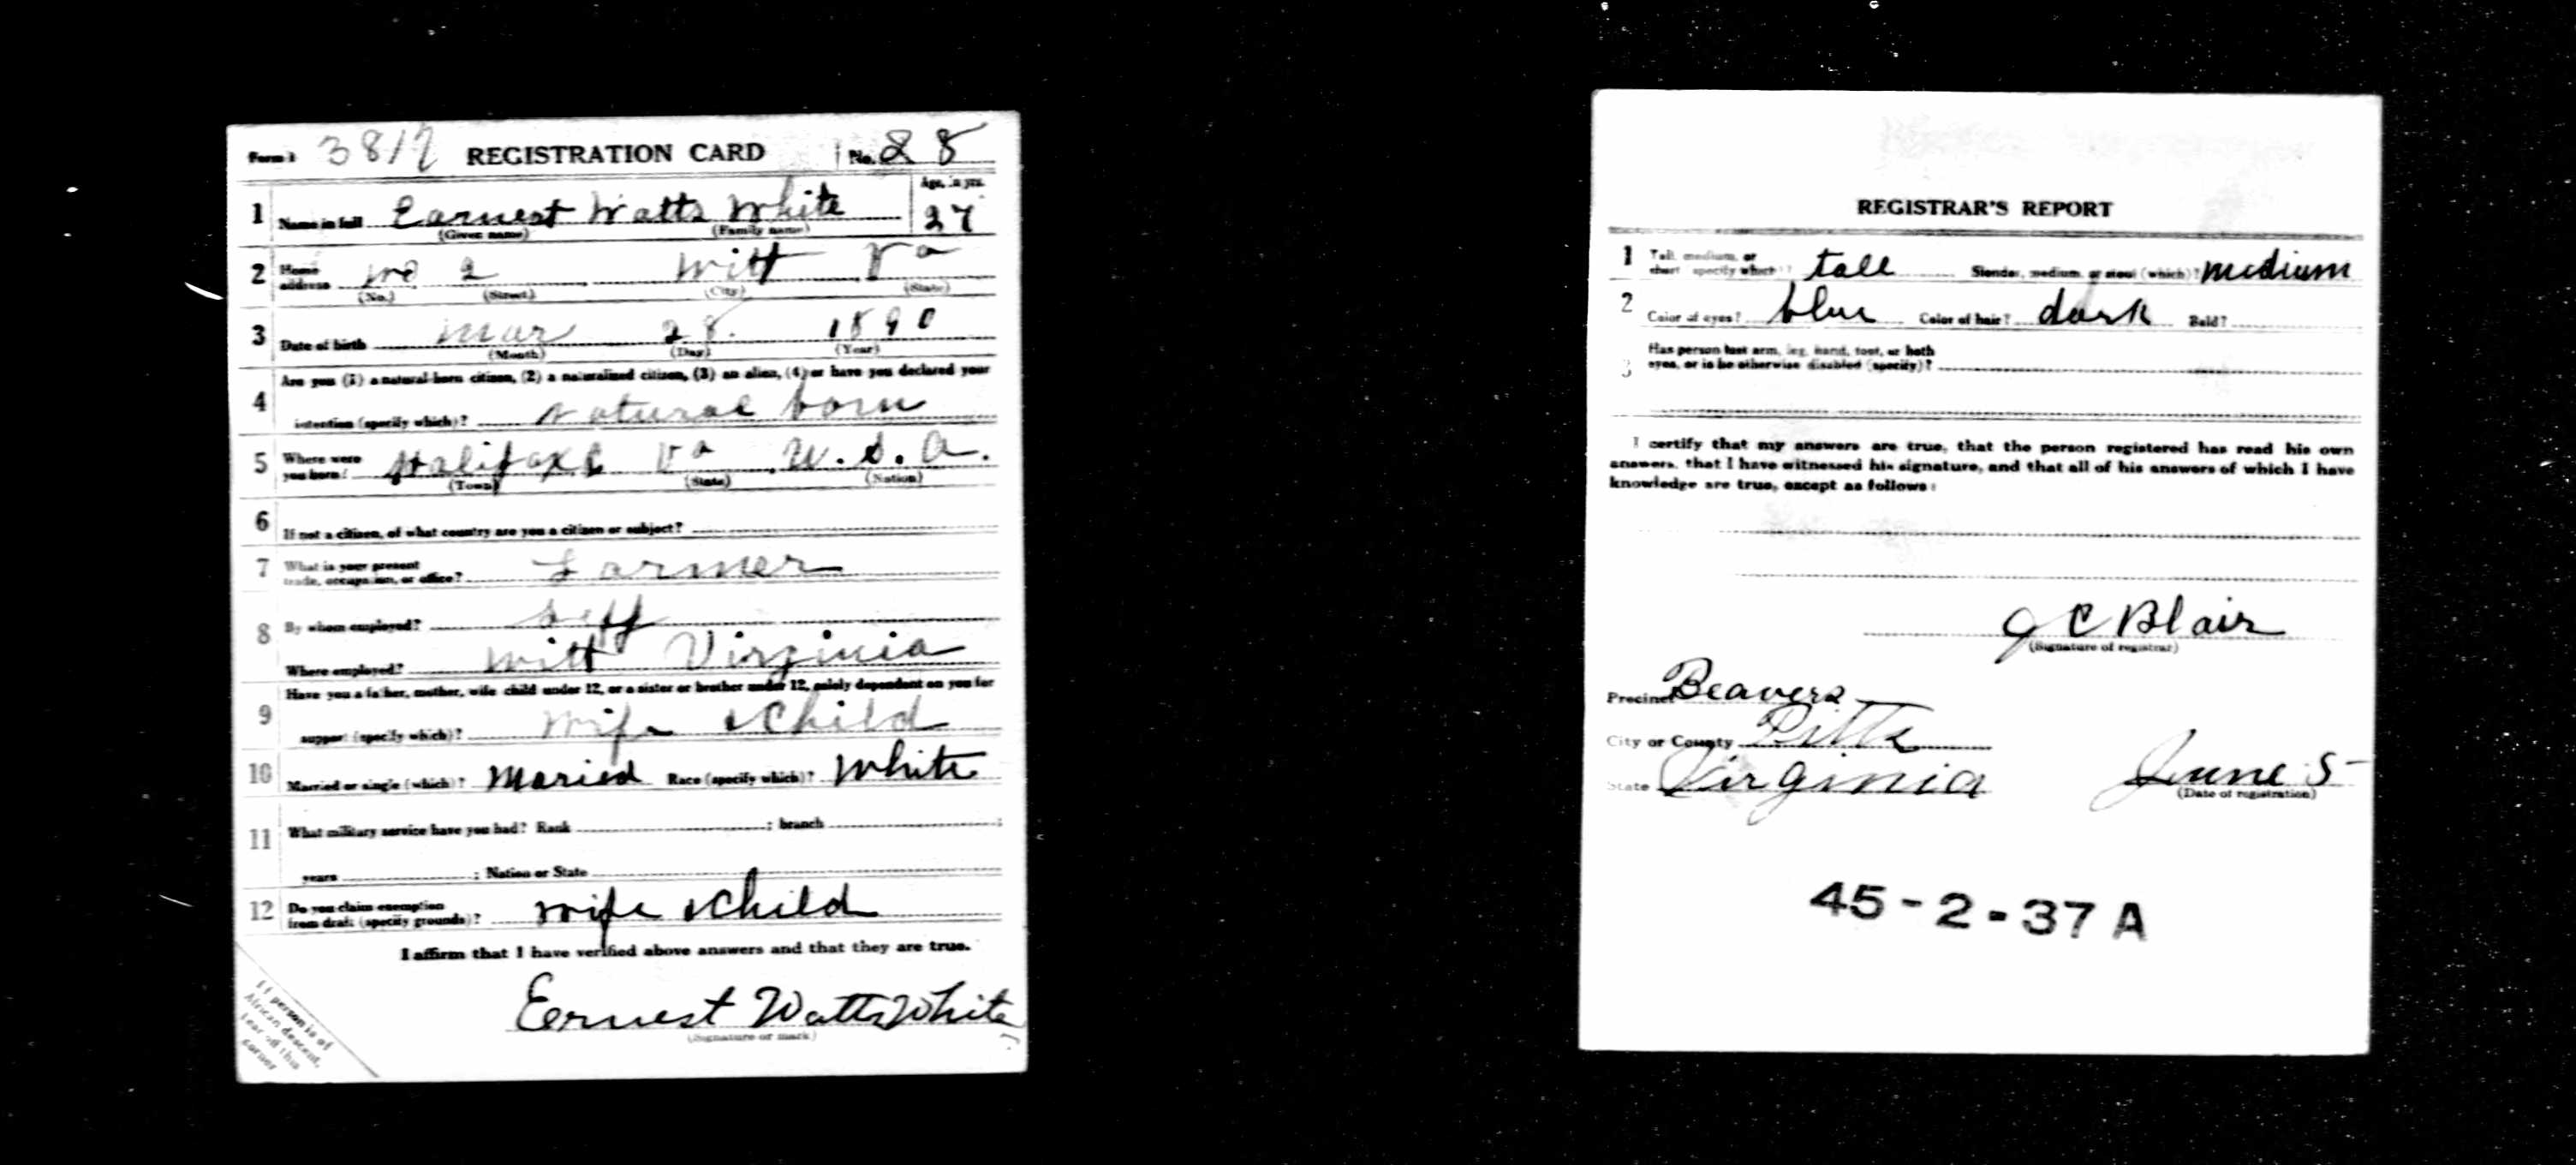 Form 1 3817 REGISTRATION CARD No. 28
1 Name in full Earnest Watts White Age, in yrs. 27
(Given name) (Family name)
2 Home address No 2 Witt Va
(No.) (Street) (City) (State)
3 Date of birth Mar 28. 1890
(Month) (Day) (Year)
4 Are you (1) a natural-born citizen, (2) a naturalized citizen, (3) an alien, (4) or have you declared your
intention (specify which)? Natural born
5 Where were you born? Halifax Va U.S.A.
(Town) (State) (Nation)
6 If not a citizen, of what country are you a citizen or subject?
7 What is your present trade, occupation, or office? Farmer
8 By whom employed? Self
Where employed? Witt Virginia
9 Have you a father, mother, wife child under 12, or a sister or brother under 12, solely dependent on you for
support (specify which)? Wife & Child
10 Married or single (which)? Maried Race (specify which)? White
11 What military service have you had? Rank ; branch ;
years ; Nation or State
12 Do you claim exemption from draft (specify grounds)? Wife & Child
I affirm that I have verified above answers and that they are true.
Ernest Watts White
(Signature or mark)
If person is of
African descent,
tear off this
corner
REGISTRAR'S REPORT
1 Tall, medium, or short (specify which)? tall Slender, medium, or stout (which)? medium
2 Color of eyes? blue Color of hair? dark Bald?
3 Has person lost arm, leg, hand, foot, or both
eyes, or is he otherwise disabled (specify)?
I certify that my answers are true, that the person registered has read his own
answers, that I have witnessed his signature, and that all of his answers of which I have
knowledge are true, except as follows:
J C Blair
(Signature of registrar)
Precinct Beavers
City or County Pitts
State Virginia June 5
(Date of registration)
45-2-37 A